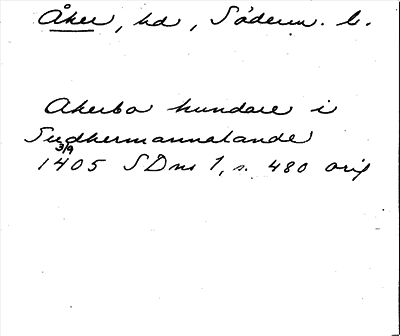 Åker, hd, Söderm. l.
Akerbo hundare i
Sudhermannalande
3/9
1405 SDns 1, s. 480 orig